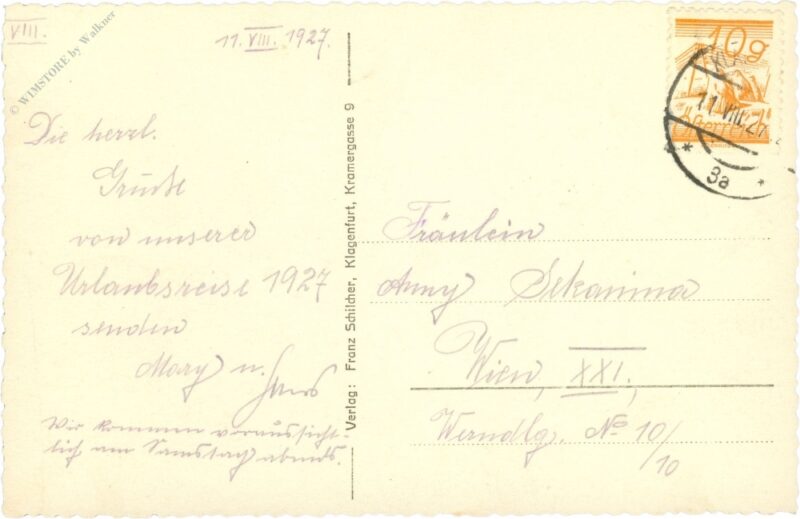 VIII.
© WIMSTORE by Walkner
11. VIII. 1927.
Die herzl.
Grüße
von unserer
Urlaubsreise 1927
senden
Mary u. Hans
Wir kommen voraussicht-
lich am Samstag abends.
Verlag: Franz Schilcher, Klagenfurt, Kramergasse 9
10g
Österreich
KLA
11.VIII.27
* 3a *
Fräulein
Anny Sekanina
Wien, XXI.,
Werndlg. No 10/
/10